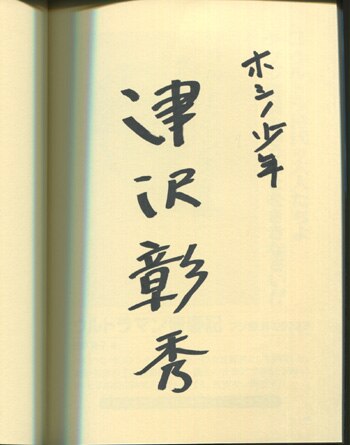 ホシノ少年
津沢彰秀